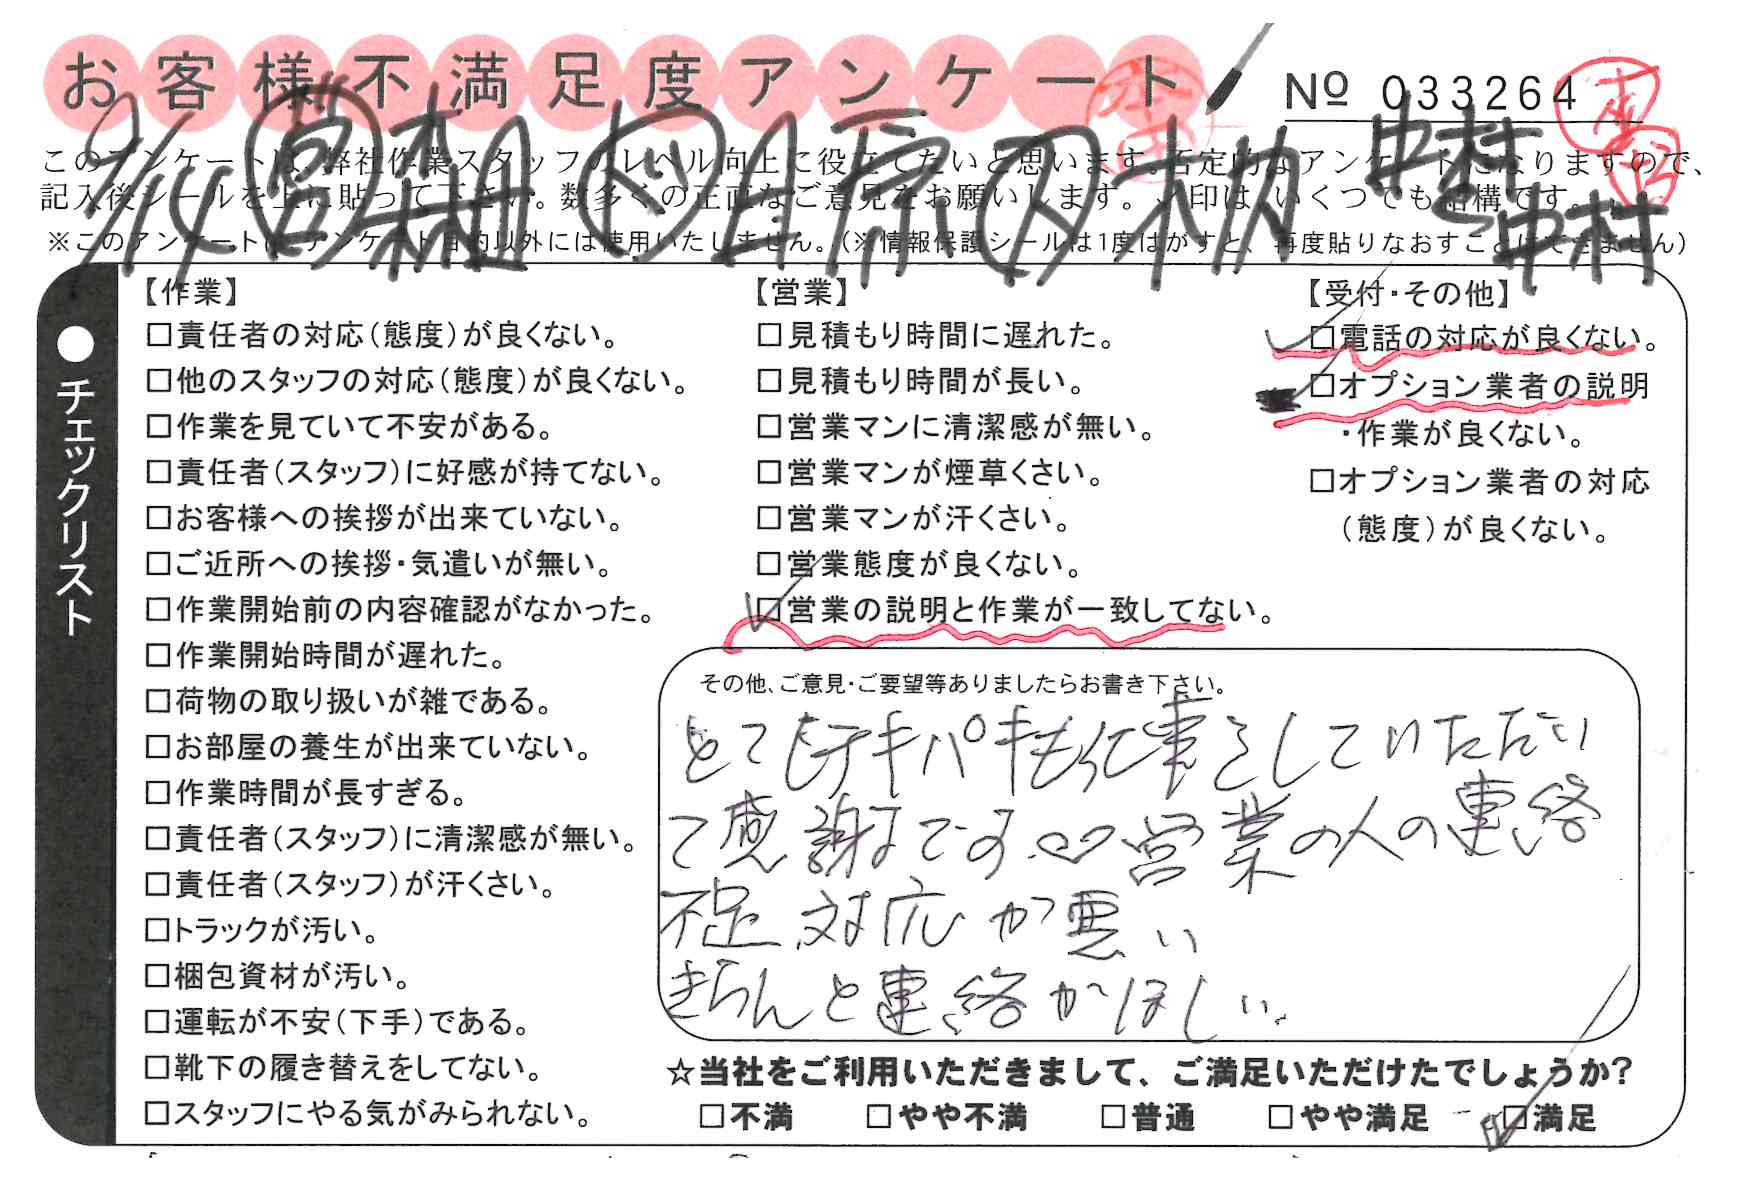 お客様不満足度アンケート
Nº 033264
9/14
中村
中村
このアンケートは、弊社作業スタッフのレベル向上に役立てたいと思います。否定的なアンケートになりますので、
記入後シールを上に貼って下さい。数多くの正直なご意見をお願いします。✓印は、いくつでも結構です。
※このアンケートは、アンケート目的以外には使用いたしません。（※情報保護シールは1度はがすと、再度貼りなおすことはできません）
●チェックリスト
【作業】
□責任者の対応（態度）が良くない。
□他のスタッフの対応（態度）が良くない。
□作業を見ていて不安がある。
□責任者（スタッフ）に好感が持てない。
□お客様への挨拶が出来ていない。
□ご近所への挨拶・気遣いが無い。
□作業開始前の内容確認がなかった。
□作業開始時間が遅れた。
□荷物の取り扱いが雑である。
□お部屋の養生が出来ていない。
□作業時間が長すぎる。
□責任者（スタッフ）に清潔感が無い。
□責任者（スタッフ）が汗くさい。
□トラックが汚い。
□梱包資材が汚い。
□運転が不安（下手）である。
□靴下の履き替えをしてない。
□スタッフにやる気がみられない。
【営業】
□見積もり時間に遅れた。
□見積もり時間が長い。
□営業マンに清潔感が無い。
□営業マンが煙草くさい。
□営業マンが汗くさい。
□営業態度が良くない。
□営業の説明と作業が一致してない。
【受付・その他】
□電話の対応が良くない。
□オプション業者の説明
・作業が良くない。
□オプション業者の対応
（態度）が良くない。
その他、ご意見・ご要望等ありましたらお書き下さい。
とてもテキパキも仕事をしていただい
て感謝まです。♡営業の人の連絡
不足、対応が悪い
きちんと連絡がほしい。
☆当社をご利用いただきまして、ご満足いただけたでしょうか?
□不満 □やや不満 □普通 □やや満足 □満足